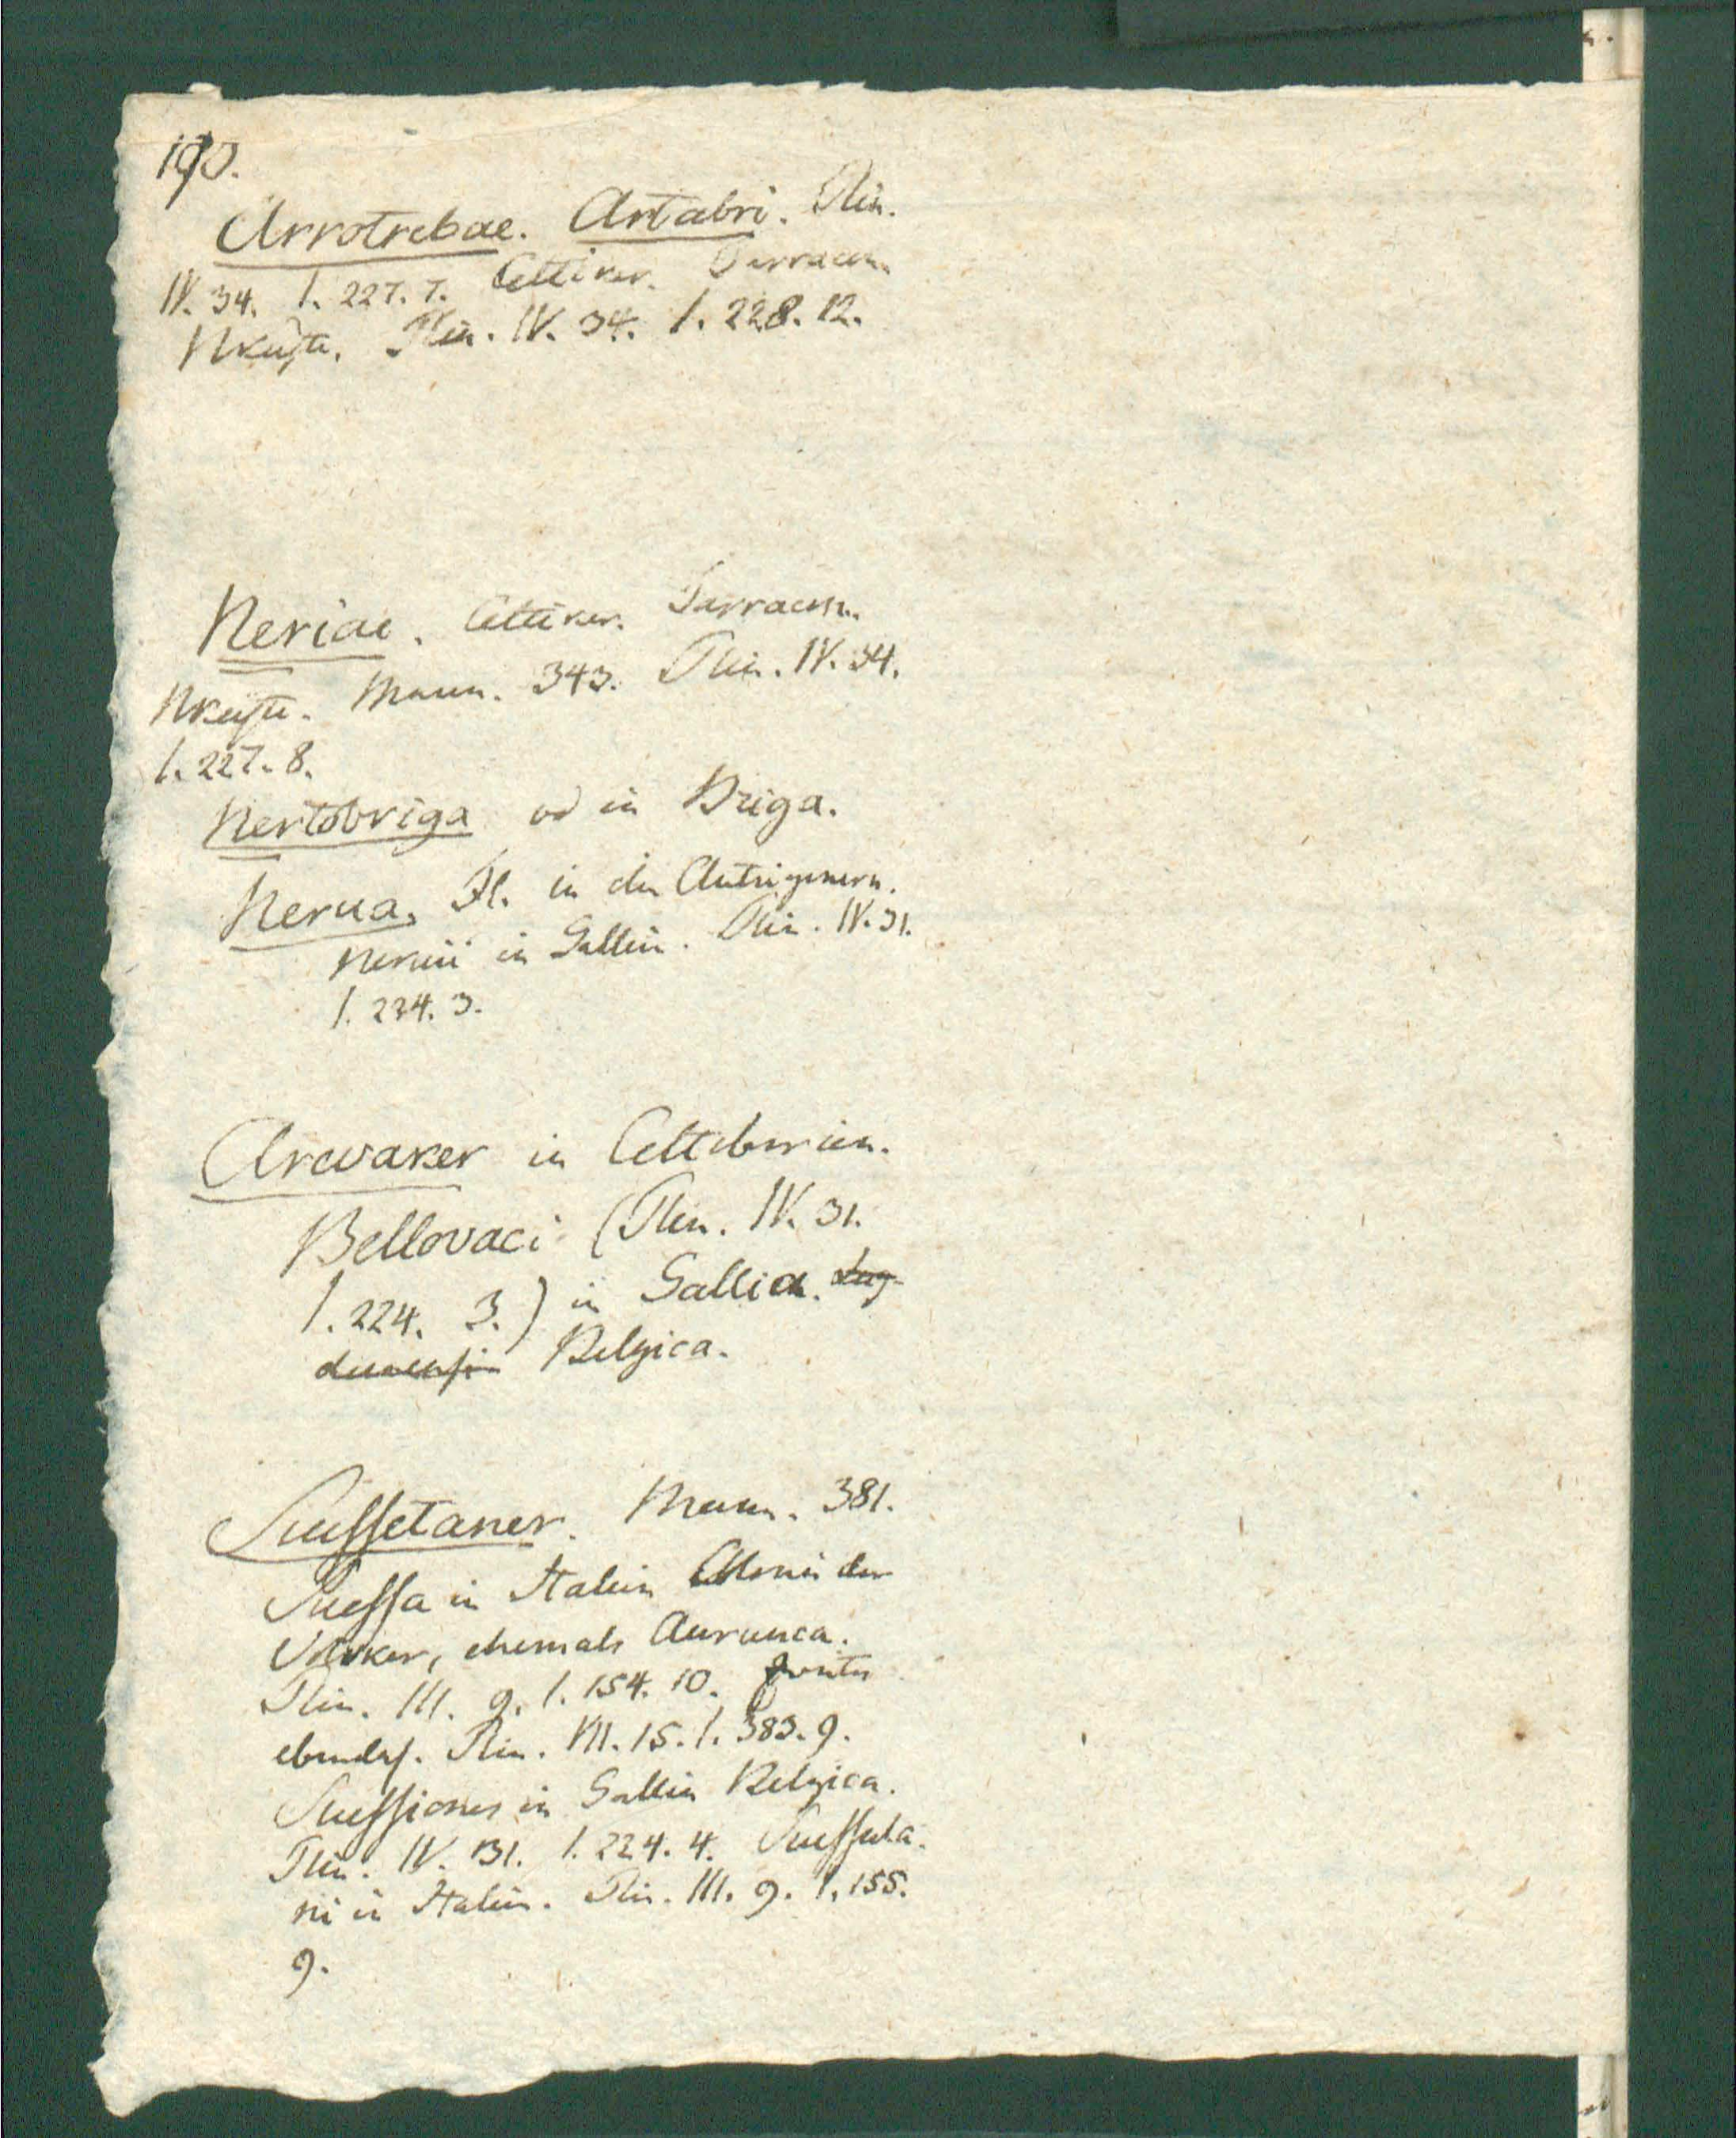 190.
Arrotrebae. Artabri. Plin.
IV. 34. I. 227. 7. Celtiker. Tarracon.
NKüste. Plin. IV. 34. I. 228. 12.
Neriae. Celtiker. Tarracon.
NKüste. Mann. 343. Plin. IV. 34.
I. 227. 8.
Nertobriga in Briga.
Nerua. Fl. in den Autrigonern.
Neruii in Gallien. Plin. IV. 31.
I. 224. 3.
Arevaker in Celtiberien.
Bellovaci (Plin. IV. 31.
I. 224. 3.) in Gallia. Lug-
dunensi Belgica.
Suessetaner. Mann. 381.
Suessa in Italien Colonie der
Volsker, ehemals Aurunca.
Plin. III. 9. I. 154. 10.
ebendas. Plin. VII. 15. I. 383. 9.
Suessiones in Gallia Belgica.
Plin. IV. 31. I. 224. 4. Suessula-
ni in Italien. Plin. III. 9. I. 155.
9.